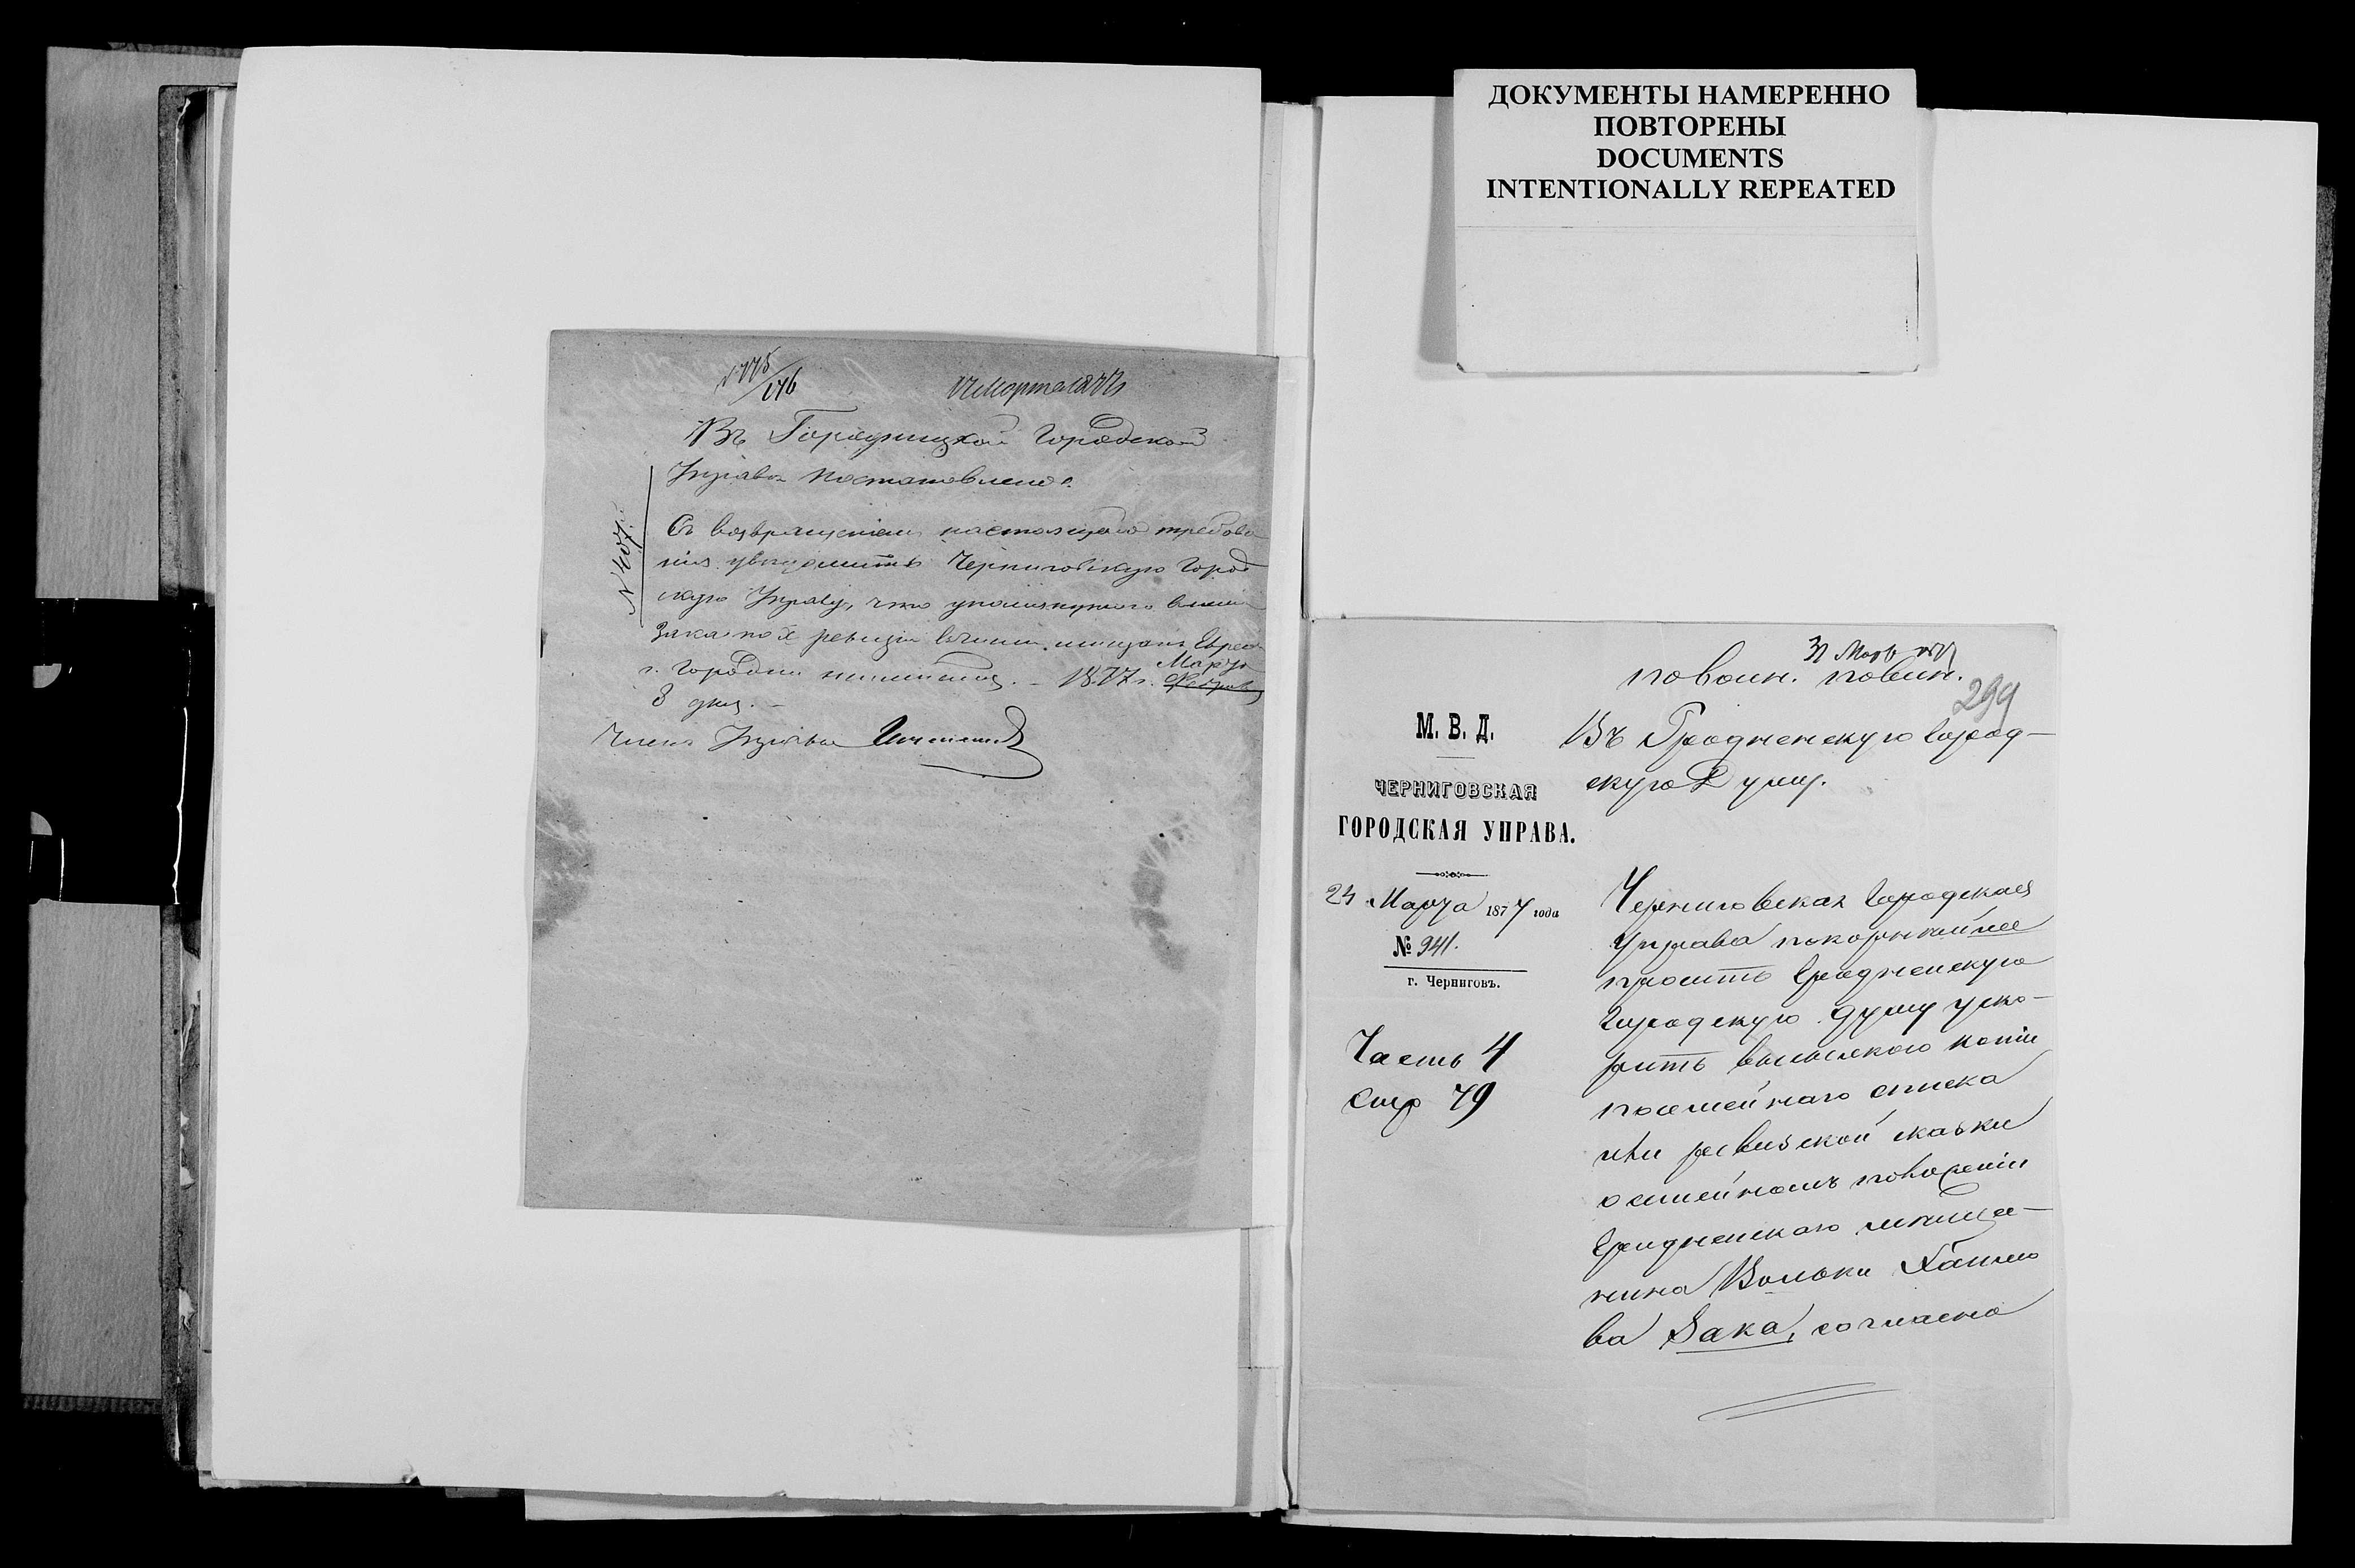 № 775/176
17 Марта 1877
Въ Городницкой Городской
Управѣ постановлено:
№ 407.
Съ возвращеніемъ настоящаго требова
нія увѣдомить Черниговскую Город
скую Управу, что упомянутого
Зака по X ревизіи мѣщанъ Евреевъ
г. Городни 1877 г. Марта
Февраля
8 дня.
Членъ Управы
ДОКУМЕНТЫ НАМЕРЕННО
ПОВТОРЕНЫ
DOCUMENTS
INTENTIONALLY REPEATED
31 Марта
по воин. повин.
299
М. В. Д.
ЧЕРНИГОВСКАЯ
ГОРОДСКАЯ УПРАВА.
24 Марта 1877 года
№ 941.
г. Черниговъ.
Часть 4
Стр 79
Въ Гродненскую Город-
скую Думу.
Черниговская Городская
Управа покорнѣйше
проситъ Гродненскую
Городскую Думу уско-
рить высылкою копіи
посемейнаго списка
или ревизской сказки
о семейномъ положеніи
Гродненскаго мѣща-
нина Вольки Хаимо
ва Зака, согласно